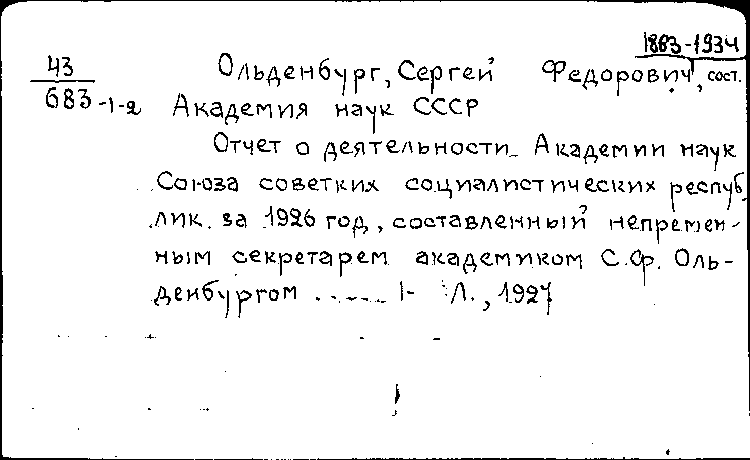 1863-1934
43 Ольденбург, Сергей Федорович, сост.
683-1-2 Академия наук СССР
Отчет о деятельности Академии наук
Союза советких социалистических респуб
лик за 1926 год, составленный непремен-
ным секретарем академиком С.Ф. Оль-
денбургом ...... 1- Л., 1927